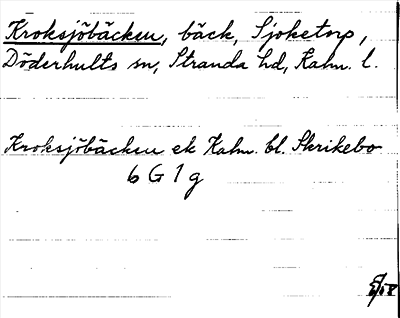 Kroksjöbäcken, bäck, Sjöketorp,
Döderhults sn, Stranda hd, Kalm. l.
Kroksjöbäcken ek Kalm. bl. Skrikebo
6 G 1 g